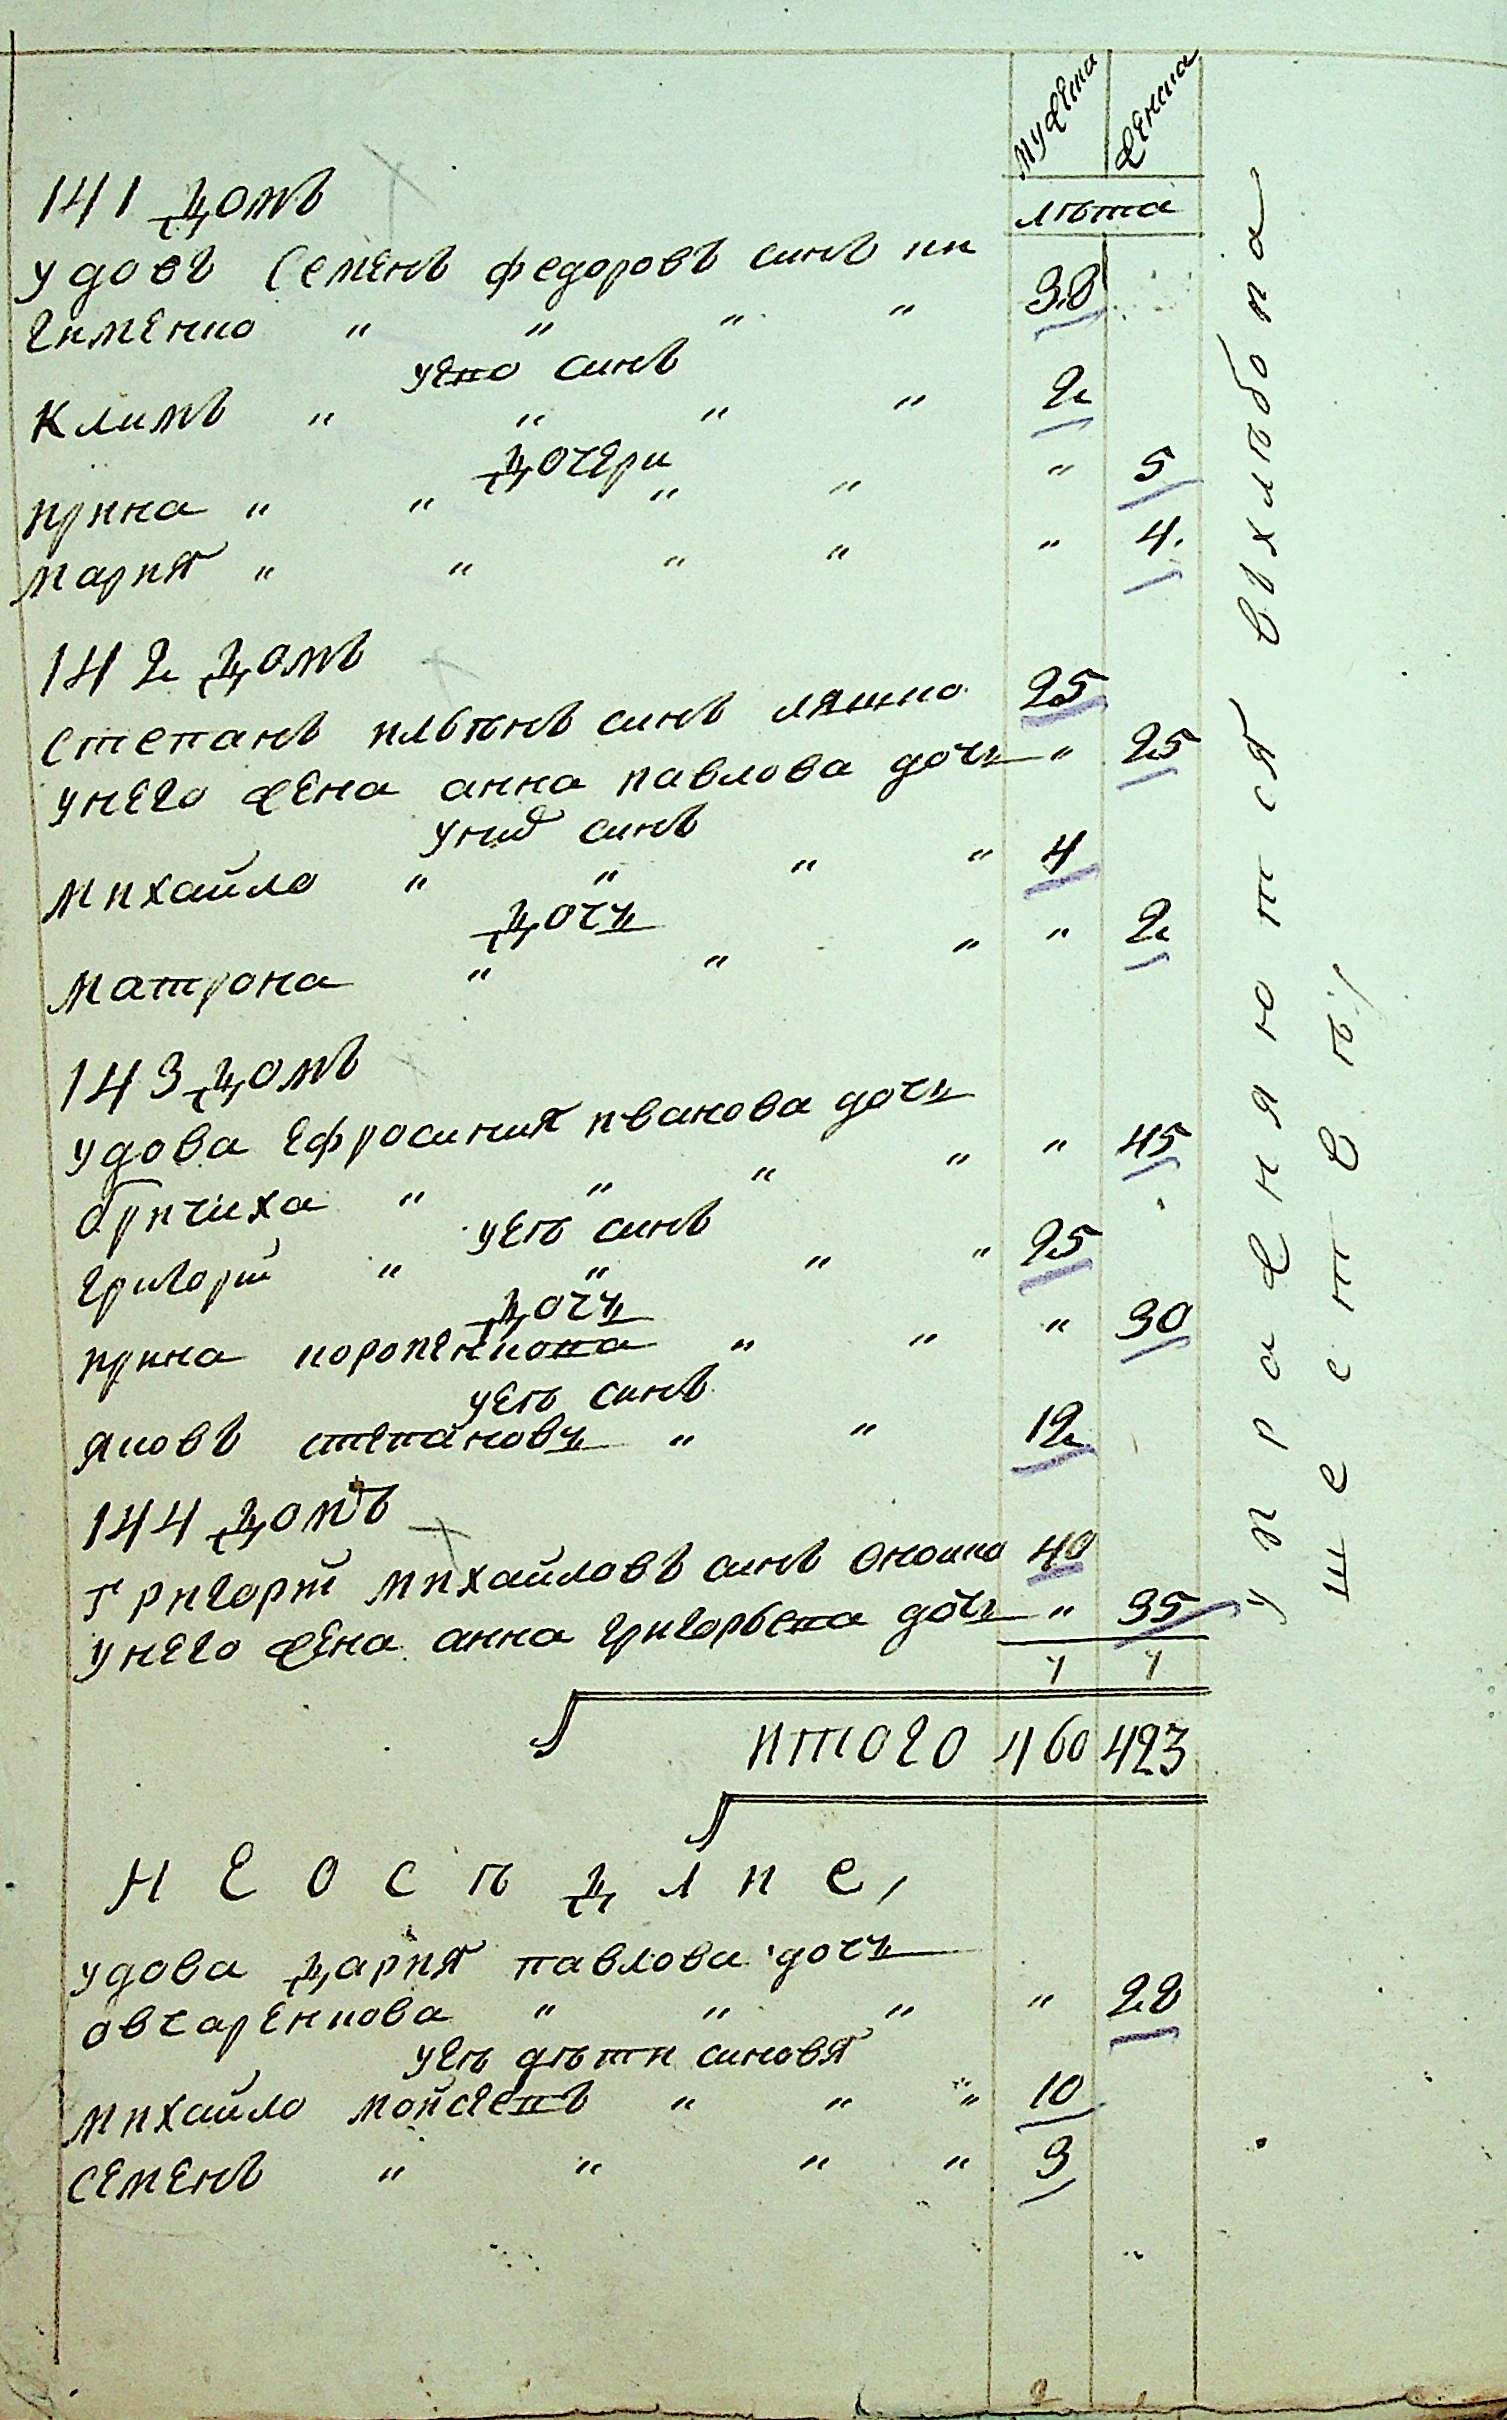 мужеска женска
лѣта
141 домъ
удовъ Семенъ федоровъ синъ пи
гименко " " " " 38
уего синъ
Климъ " " " " 2
дочери
ирина " " " " " 5
мария " " " " " 4
142 домъ
степанъ ильинъ синъ ляшко 25
унего жена анна павлова дочь " 25
унихъ синъ
михайло " " " " 4
дочь
матрона " " " " 2
143 домъ
удова Ефросиния иванова дочь
бричиха " " " " " 45
уеѣ синъ
григорій " " " " 25
дочь
ирина " " " 30
уеѣ синъ
яковъ степановъ " " 12
144 домъ
Григорій михайловъ синъ оношко 40
унего жена анна григорьева дочь " 35
итого 460 423
НЕОСѢДЛИЕ,
удова дария павлова дочь
овчаренкова " " " " 28
уеѣ дѣти синовя
михайло мойсеевъ " " " 10
семенъ " " " " 3
упражняются въхлѣбопа
шествѣ